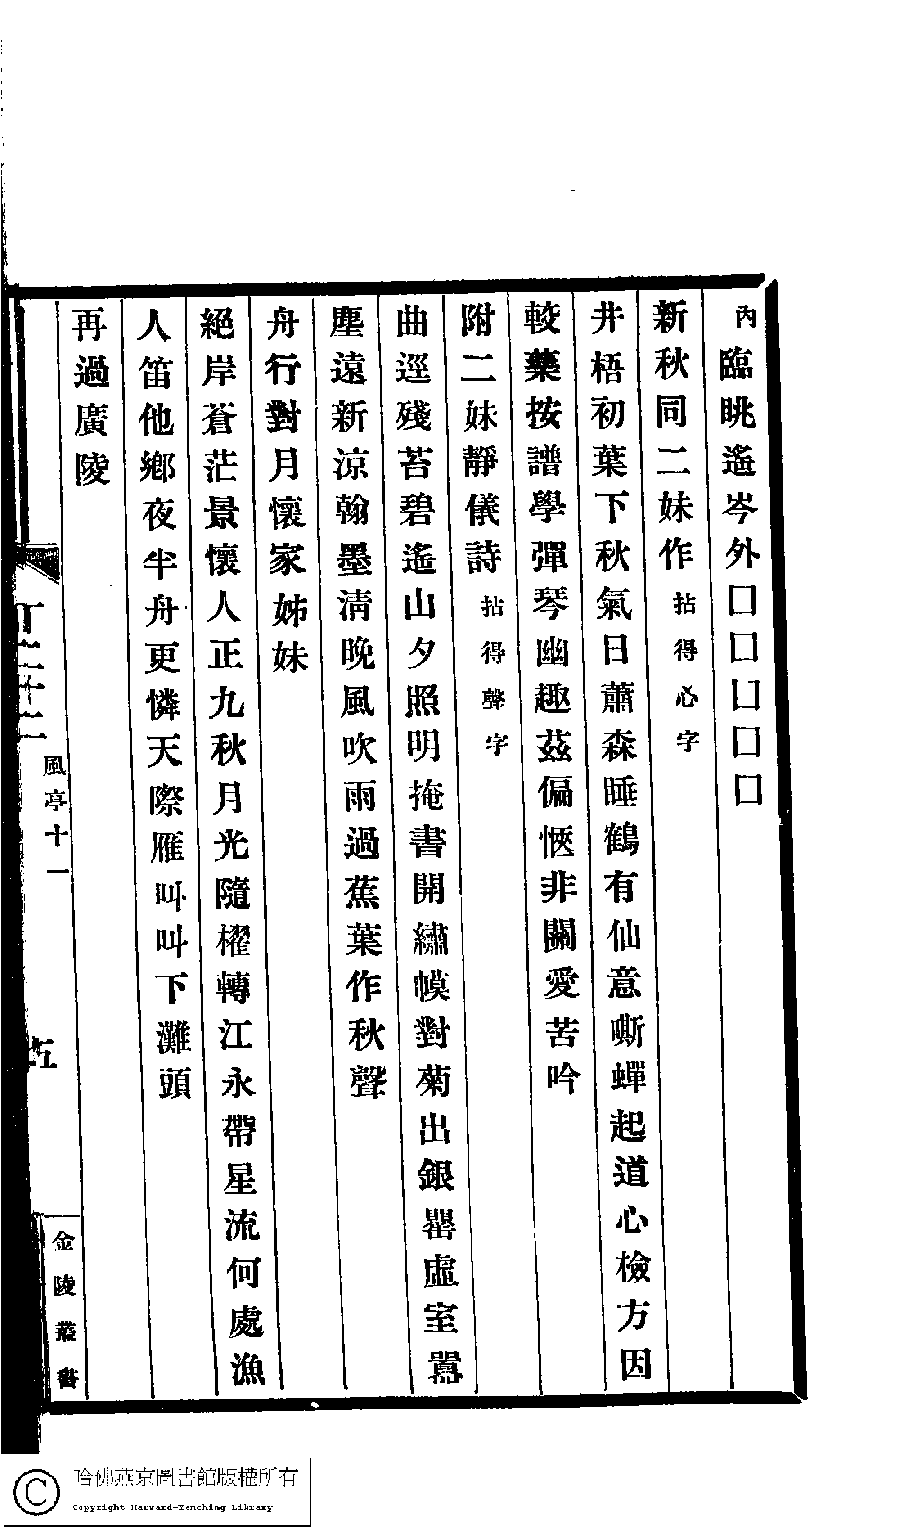 內臨眺遙岑外囗囗囗囗囗
新秋同二妹作拈得心字
井梧初葉下秋氣日蕭森睡鶴有仙意嘶蟬起道心檢方因
較藥按譜學彈琴幽趣茲偏愜非關愛苦吟
附二妹靜儀詩拈得聲字
曲逕殘苔碧遙山夕照明掩書開繡幙對菊出銀罌虛室囂
塵遠新涼翰墨清晚風吹雨過蕉葉作秋聲
舟行對月懷家姊妹
絕岸蒼茫景懷人正九秋月光隨櫂轉江永帶星流何處漁
人笛他鄉夜半舟更憐天際雁叫叫下灘頭
再過廣陵
風亭十一
五
金陵叢書
哈佛燕京圖書館版權所有
Copyright Harvard-Yenching Library